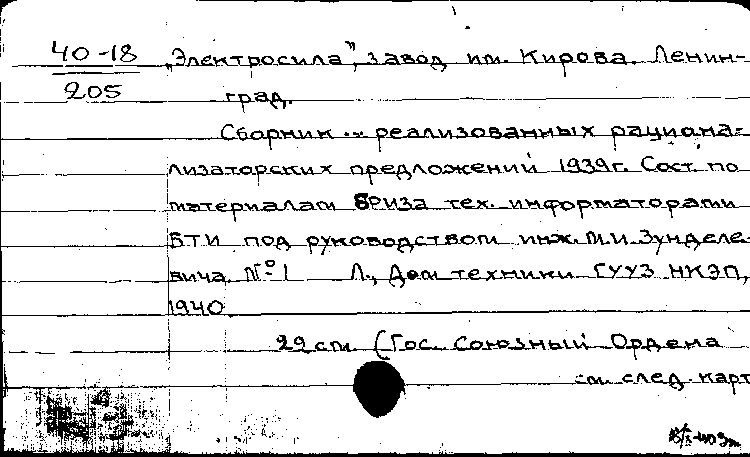 40-18
205
„Электросила", завод им. Кирова. Ленин-
град.
Сборник ... реализованных рациона-
лизаторских предложений 1939г. Сост. по
материалам БРИЗа тех. информаторами
БТИ под руководством инж. М.И. Зунделе-
вича. № 1 Л., Дом техники ГУУЗ НКЭП,
1940
22 см. (Гос. Союзный Ордена
см. след. карт